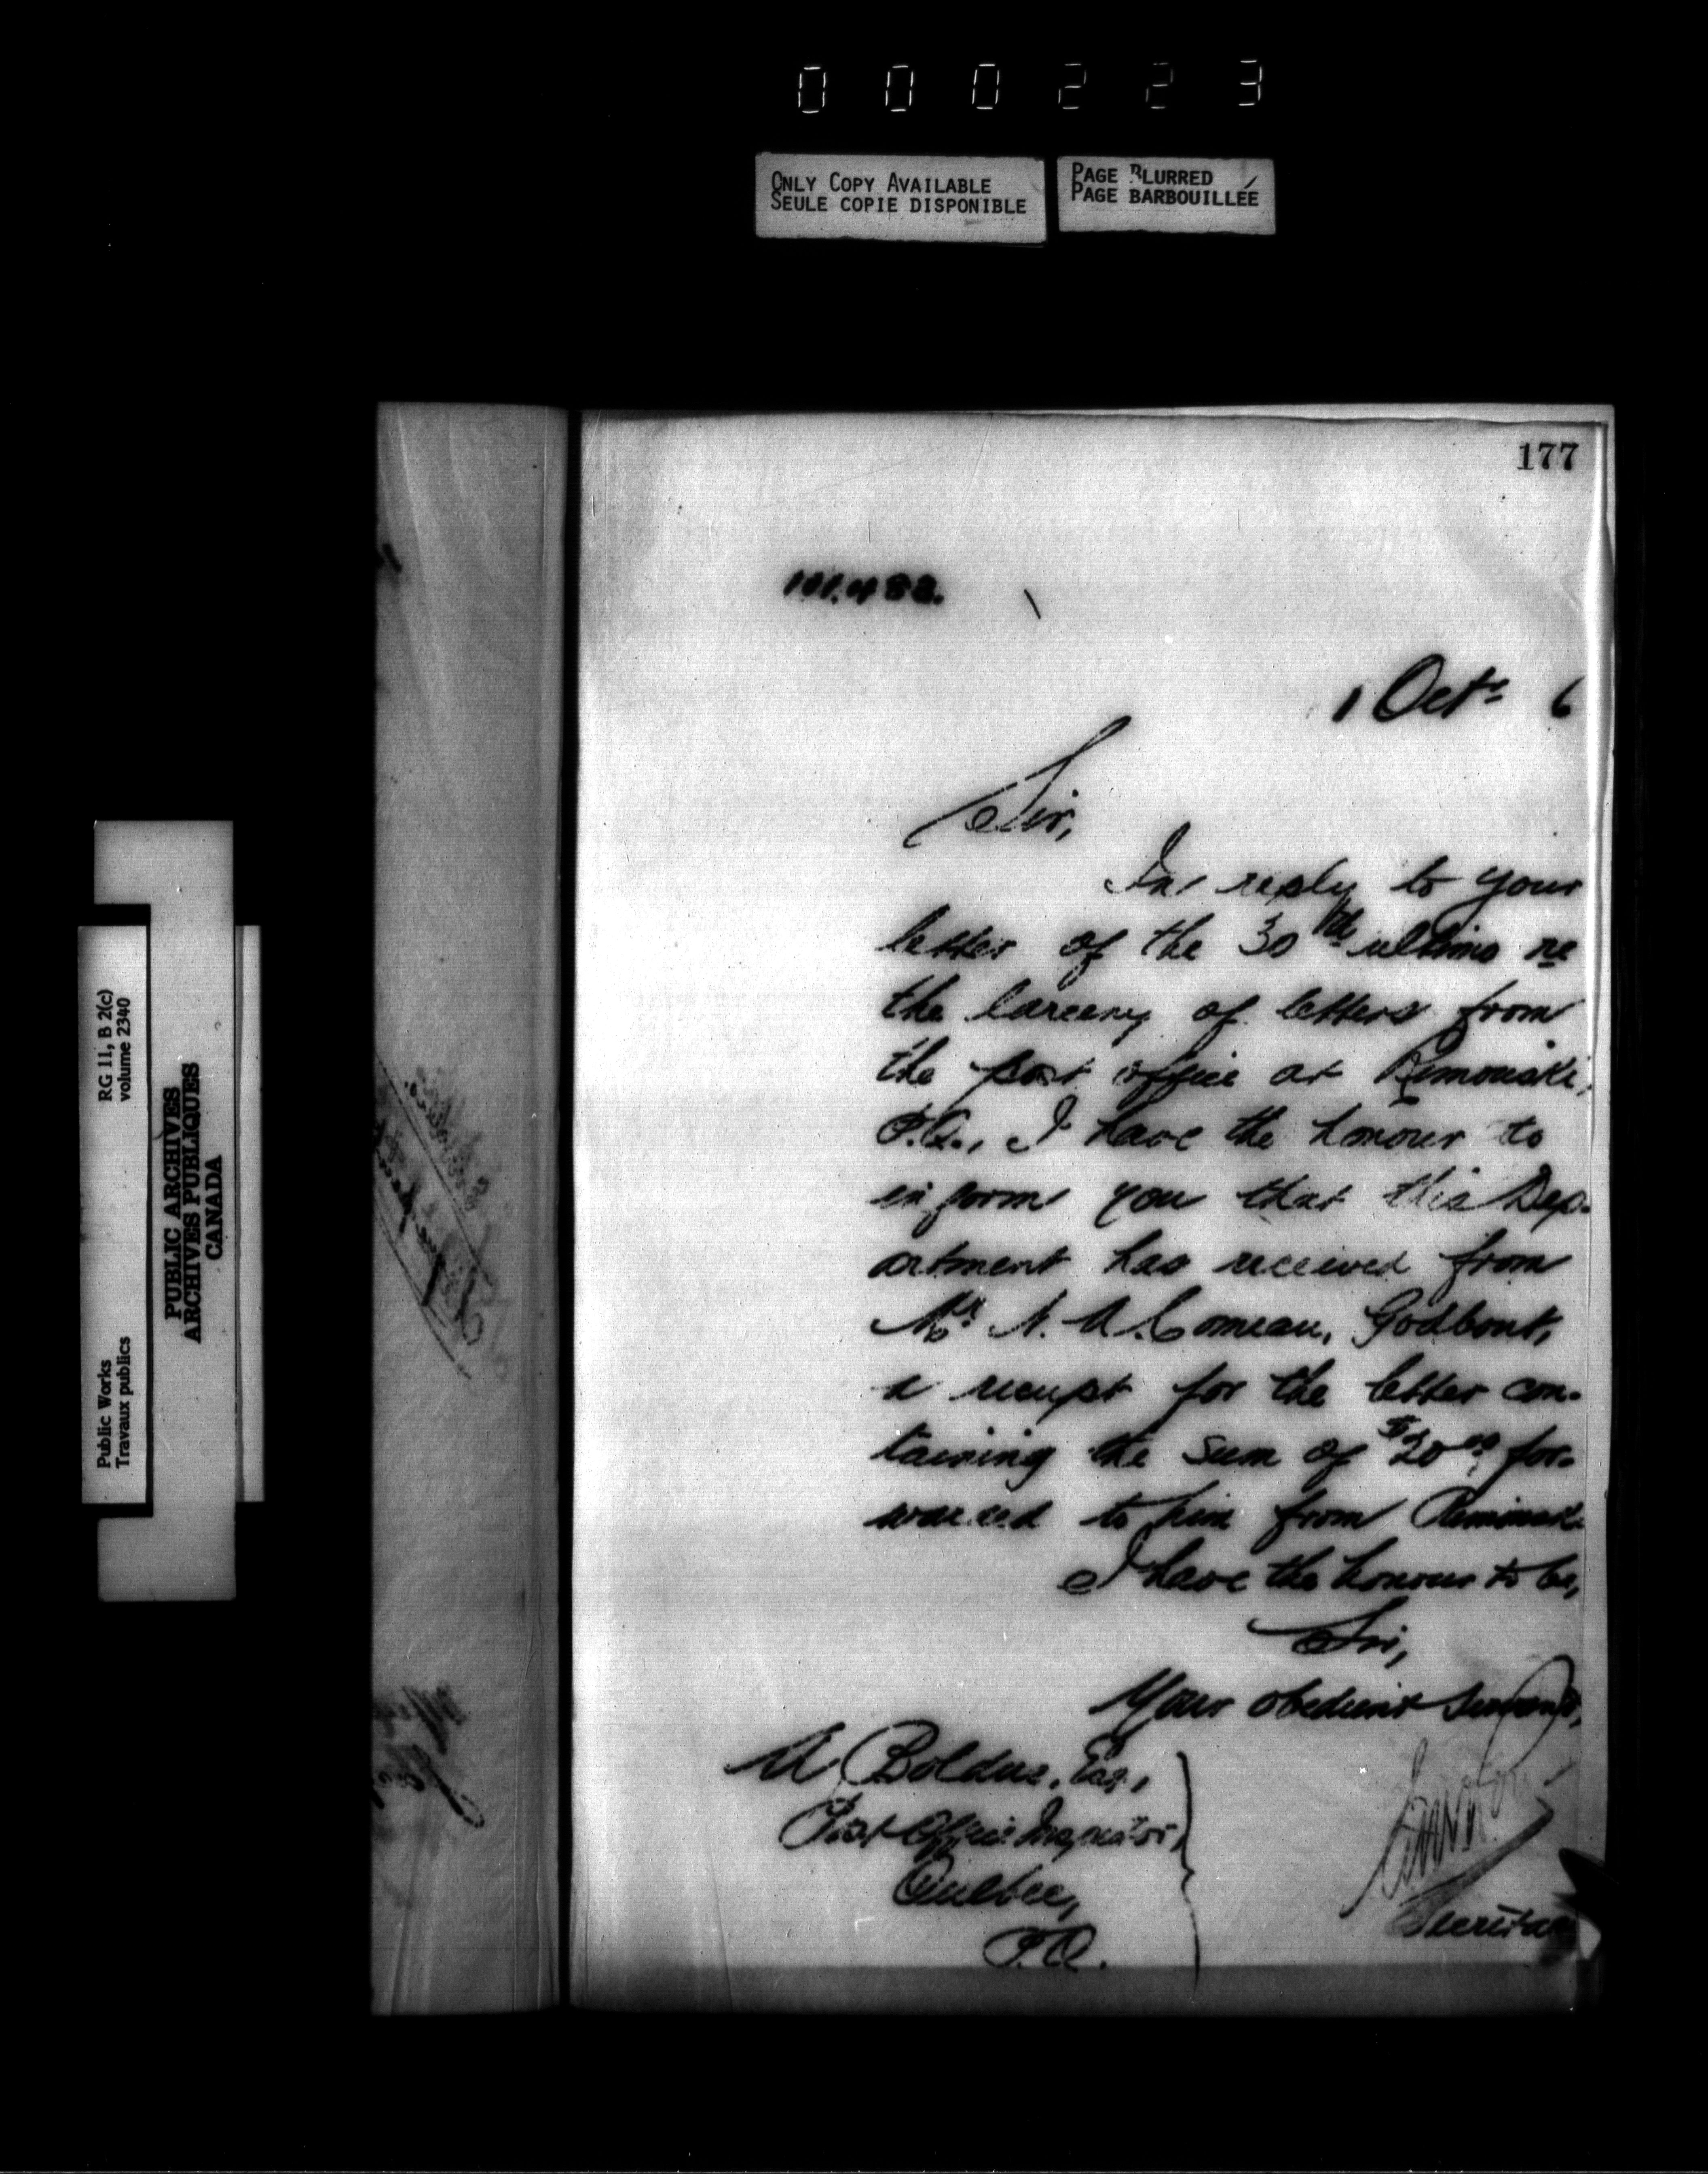 000223
ONLY COPY AVAILABLE
SEULE COPIE DISPONIBLE
PAGE BLURRED
PAGE BARBOUILLÉE
RG 11, B 2(c)
volume 2340
Public Works
Travaux publics
PUBLIC ARCHIVES
ARCHIVES PUBLIQUES
CANADA
177
1 Oct. 6
Sir,
In reply to your
letter of the 30th ultimo re
the larceny of letters from
the post office at Rimouski,
P.Q., I have the honour to
inform you that this Dep-
artment has received from
Mr. N. A. Comeau, Godbout,
a receipt for the letter con-
taining the sum of $20.00 for-
warded to him from Rimouski
I have the honour to be,
Sir,
Your obedient Servant,
A Bolduc, Esq.,
Post Office Inspector,
Quebec,
P.Q.
Secretary